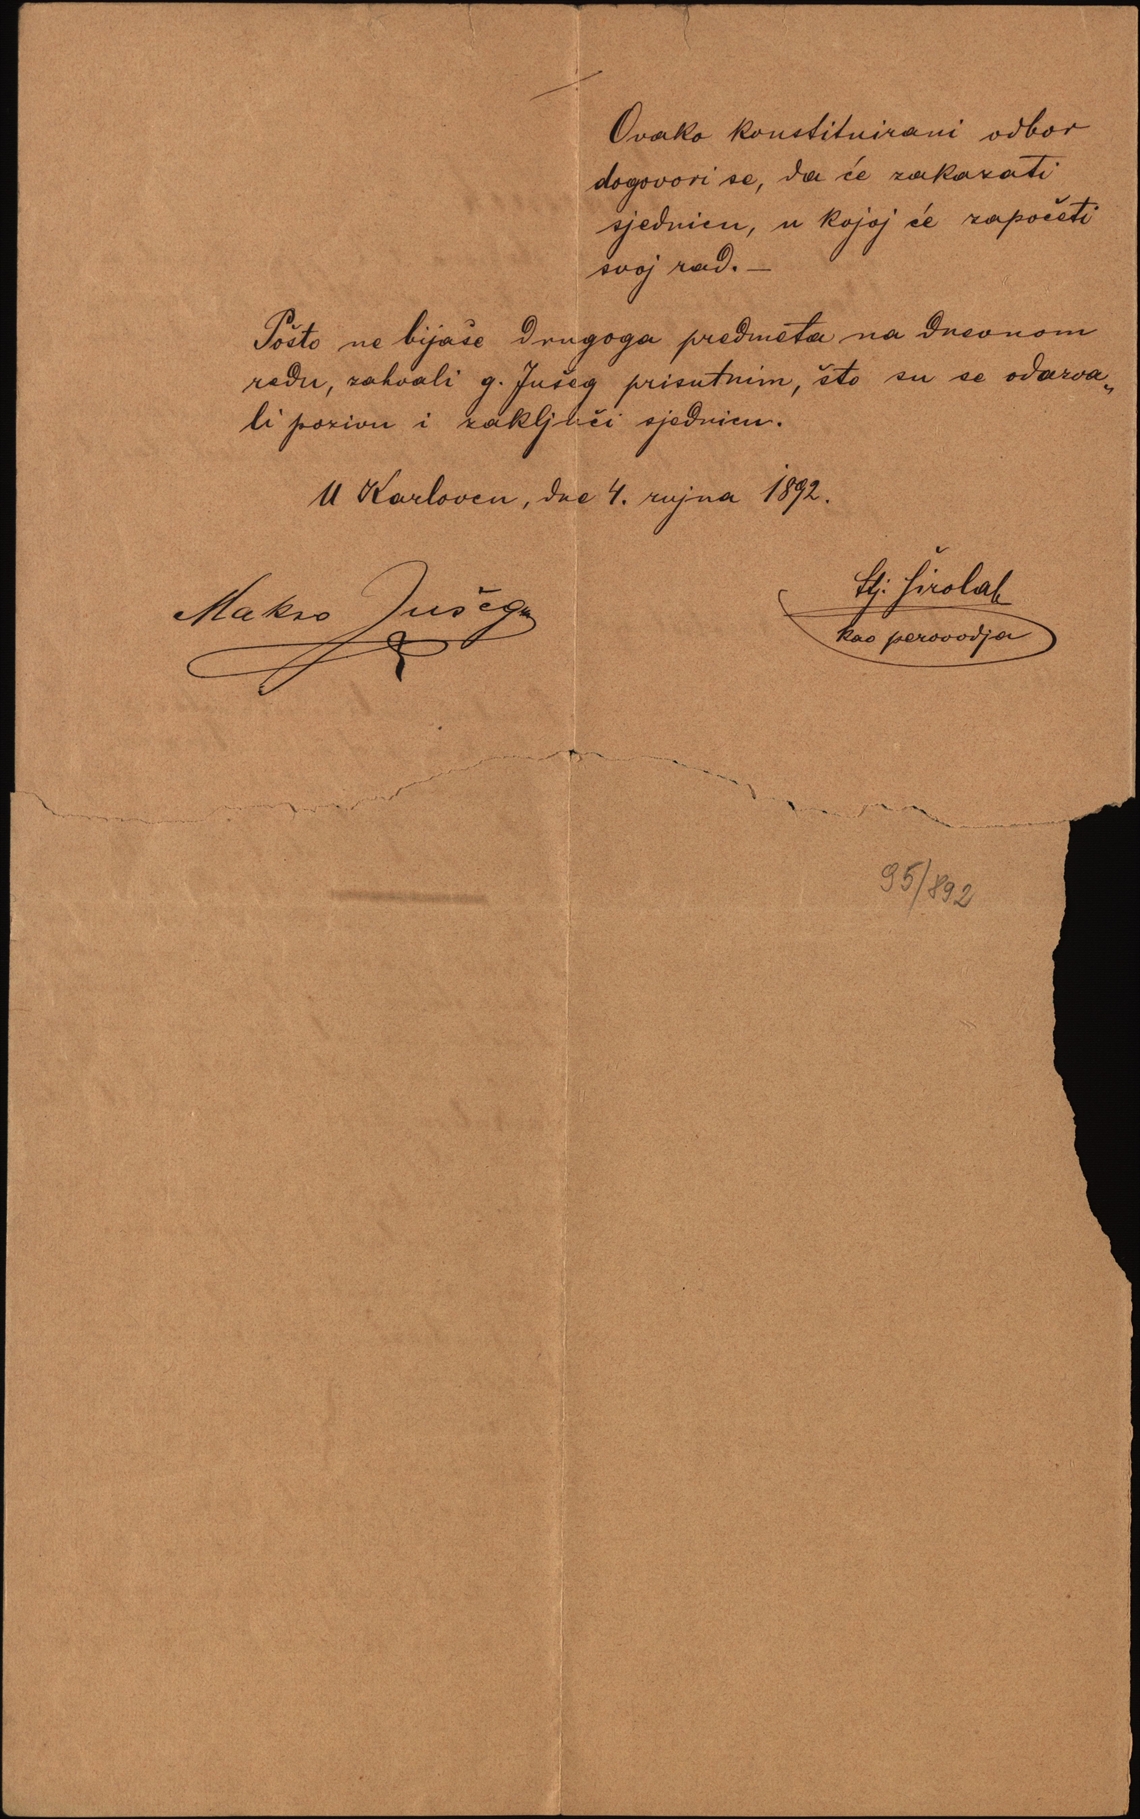 Ovako konstituirani odbor
dogovori se, da će zakazati
sjednicu, u kojoj će započeti
svoj rad. —
Pošto ne bijaše drugoga predmeta na dnevnom
redu, zahvali g. Jušeg prisutnim, što su se odazva„
li pozivu i zaključi sjednicu.
U Karlovcu, dne 4. rujna 1892.
Makso Jušeg
Stj. Širola
kao perovodja
95/892